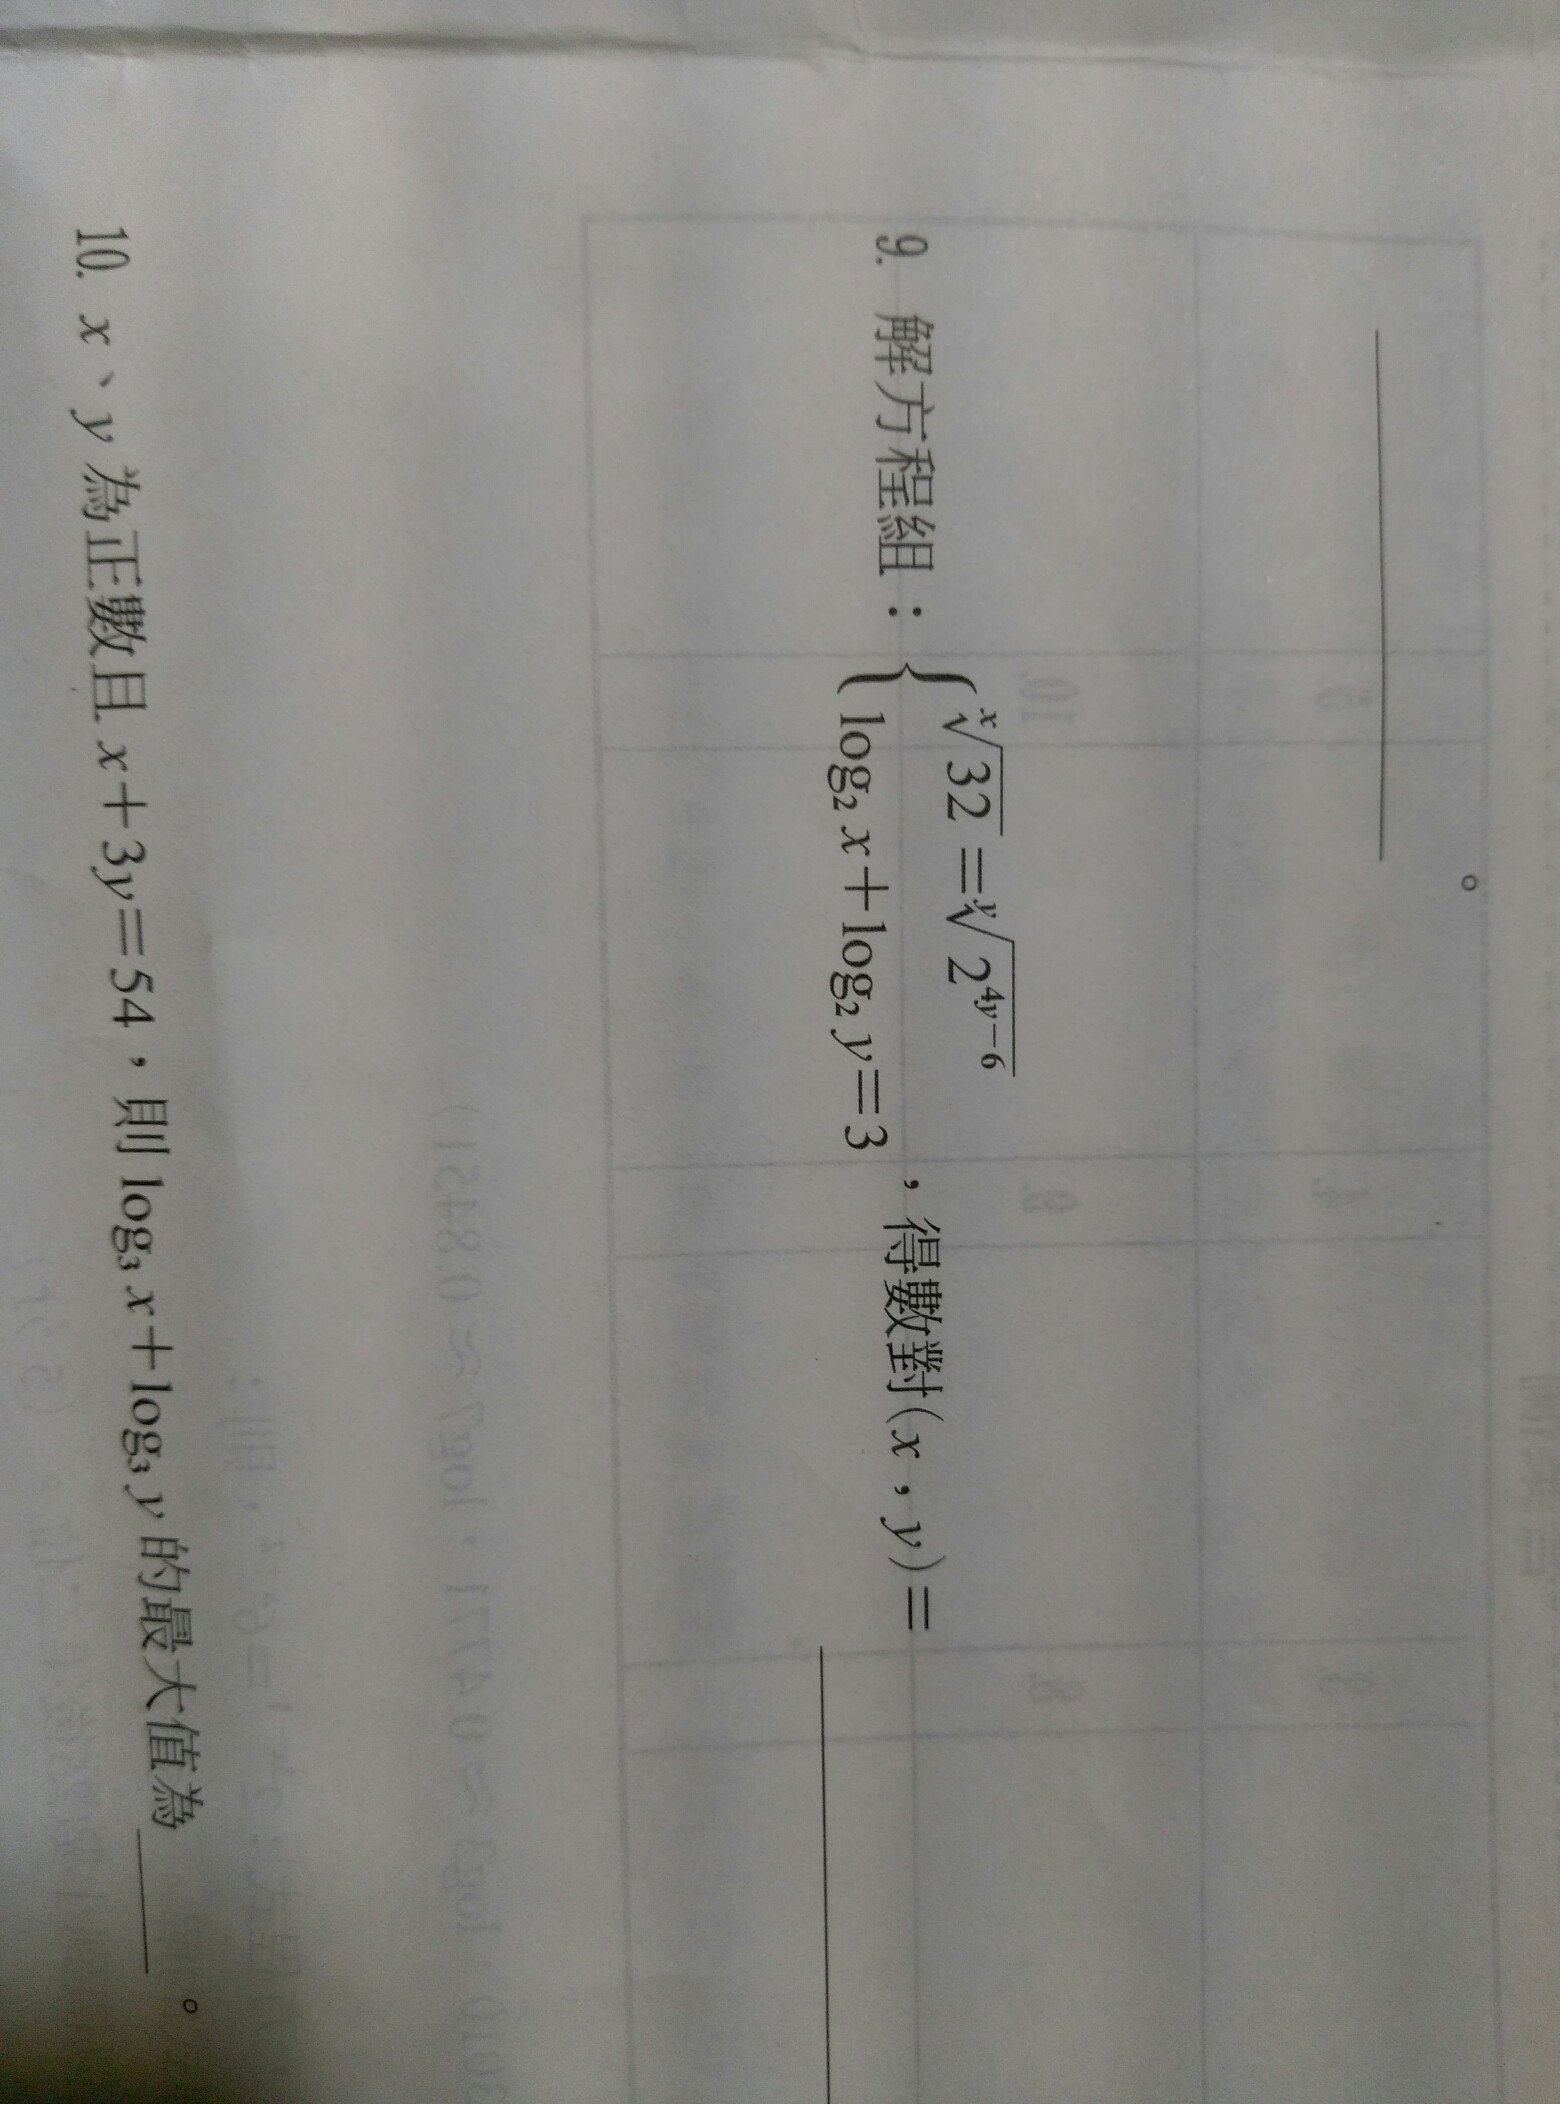 。
9. 解方程組：{ ˣ√32 = ʸ√2^(4y−6)
log₂ x＋log₂ y＝3 ，得數對(x，y)＝
10. x、y 為正數且 x＋3y＝54，則 log₃ x＋log₃ y 的最大值為 ＿＿＿。